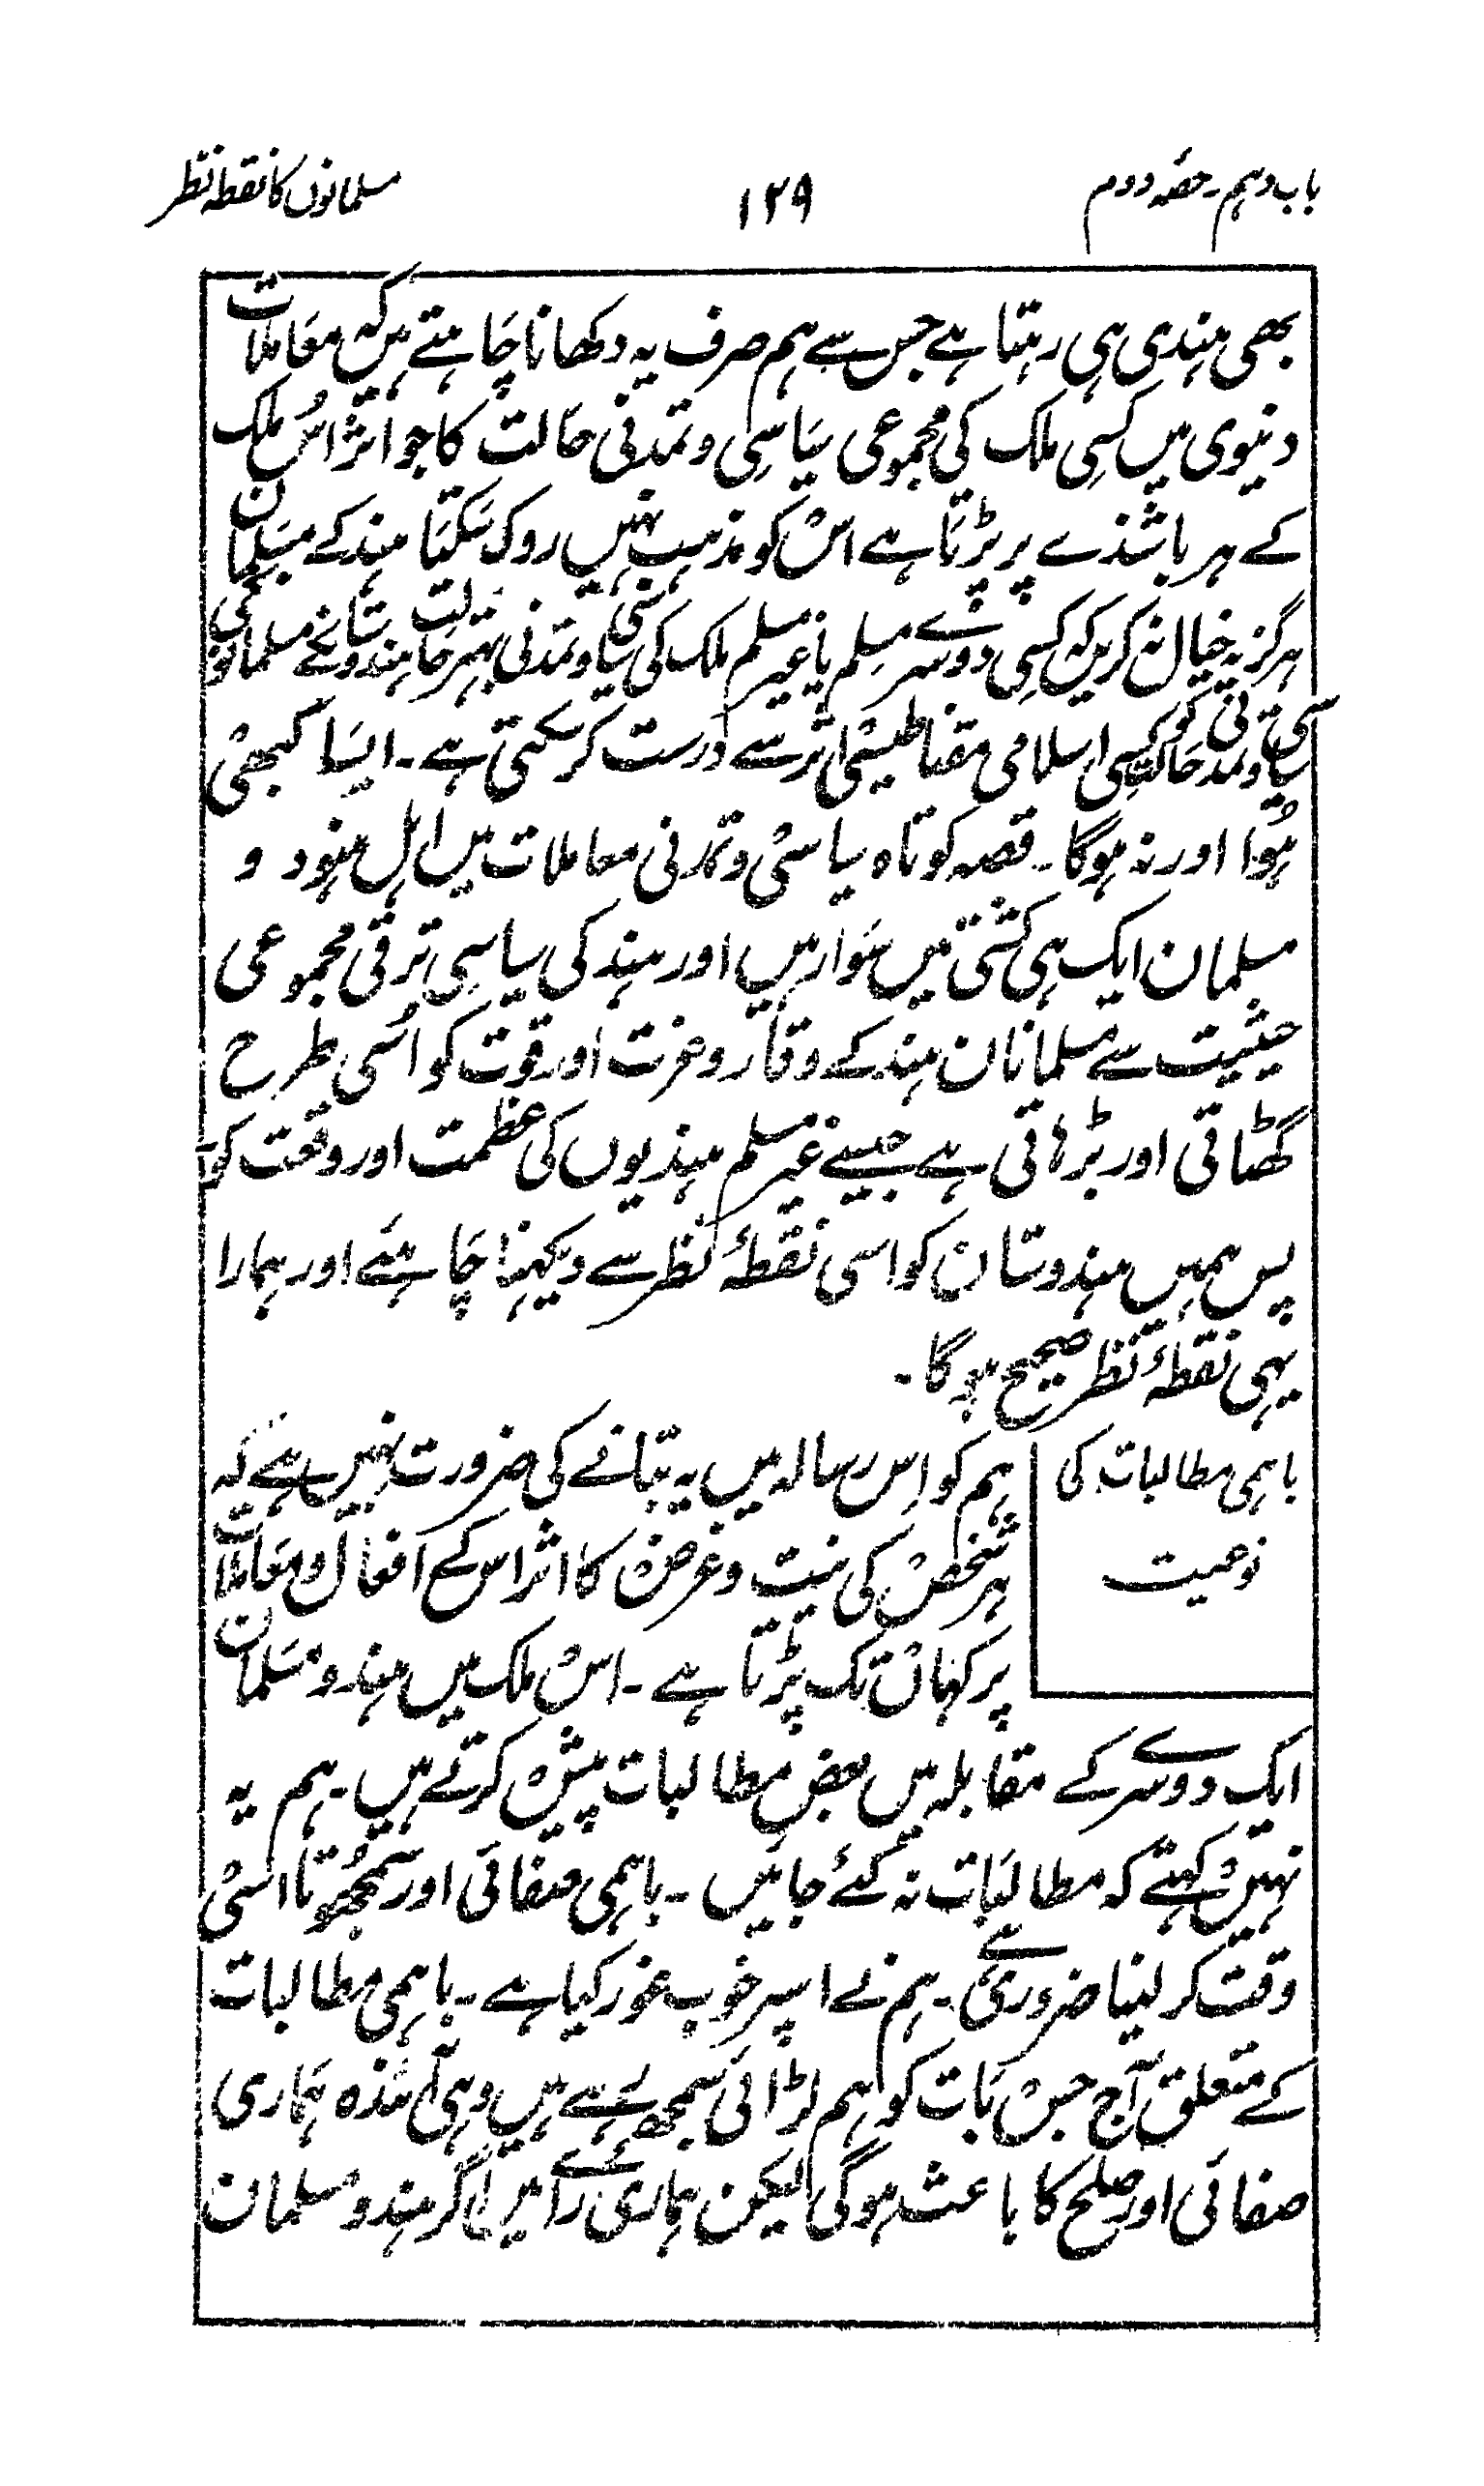 باب دہم۔ حصّہ دوم
۱۲۹
مسلمانوں کا نقطہ نظر
بھی ہندی ہی رہتا ہے جس سے ہم صرف یہ دکھانا چاہتے ہیں کہ معاملات
دنیوی میں کسی ملک کی مجموعی سیاسی و تمدنی حالت کا جو اثر اُس ملک
کے ہر باشندے پر پڑتا ہے اس کو مذہب نہیں روک سکتا ہند کے مسلمان
ہرگز یہ خیال نہ کریں کہ کسی دوسرے مسلم یا غیر مسلم ملک کی سیاسی و تمدنی بہتر حالت ہندوستان کے مسلمانوں کی
سیاسی و تمدنی حالت کو کسی اسلامی مقناطیسی اثر سے درست کر سکتی ہے۔ ایسا کبھی
ہُوا اور نہ ہوگا۔ قصہ کوتاہ سیاسی و تمدنی معاملات میں اہل ہنود و
مسلمان ایک ہی کشتی میں سوار ہیں اور ہند کی سیاسی ترقی مجموعی
حیثیت سے مسلمانان ہند کے وقار و عزت اور قوت کو اُسی طرح
گھٹاتی اور بڑہاتی ہے جیسے غیر مسلم ہندیوں کی عظمت اور وقعت کو۔
پس ہمیں ہندوستان کو اسی نقطۂ نظر سے دیکہنا چاہئے اور ہمارا
یہی نقطۂ نظر صحیح ہوگا۔
باہمی مطالبات کی
نوعیت
ہم کو اِس رسالہ میں یہ بتانے کی ضرورت نہیں ہے کہ
ہر شخص کی نیت و غرض کا اثر اس کے افعال و معاملات
پر کہاں تک پڑتا ہے۔ اس ملک میں ہندو مسلمان
ایک دوسرے کے مقابلہ میں بعض مطالبات پیش کرتے ہیں۔ ہم یہ
نہیں کہتے کہ مطالبات نہ کئے جائیں۔ باہمی صفائی اور سمجھوتا اسی
وقت کر لینا ضروری ہے۔ ہم نے اسپر خوب غور کیا ہے۔ باہمی مطالبات
کے متعلق آج جس بات کو ہم لڑائی سمجھ رہے ہیں وہی آئندہ ہماری
صفائی اور صلح کا باعث ہوگی لیکن ہماری رائے میں اگر ہندو مسلمان